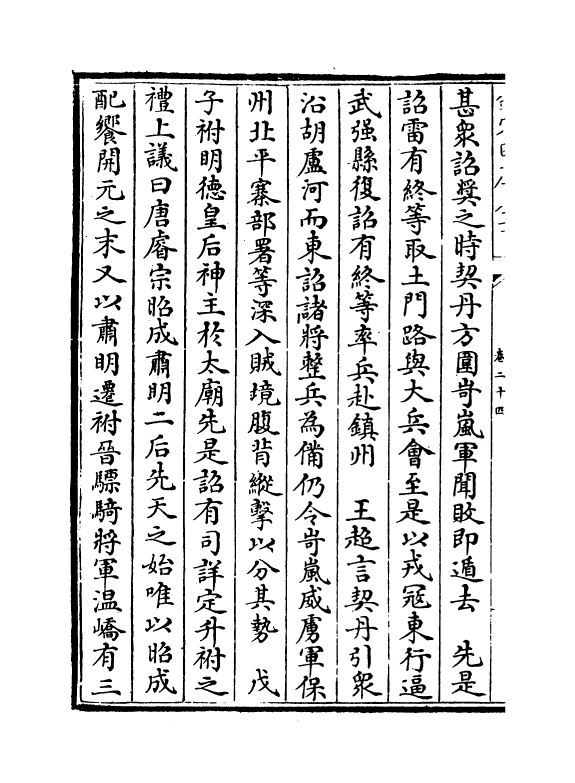 卷二十四
甚衆詔奬之時契丹方圍岢嵐軍聞敗即遁去　先是
詔雷有終等取土門路與大兵會至是以戎冦東行逼
武强縣復詔有終等率兵赴鎮州　王超言契丹引衆
沿胡盧河而東詔諸將整兵為備仍令岢嵐威虜軍保
州北平寨部署等深入賊境腹背縱擊以分其勢　戊
子祔明德皇后神主於太廟先是詔有司詳定升祔之
禮上議曰唐睿宗昭成肅明二后先天之始唯以昭成
配饗開元之末又以肅明遷祔晉驃騎將軍温嶠有三